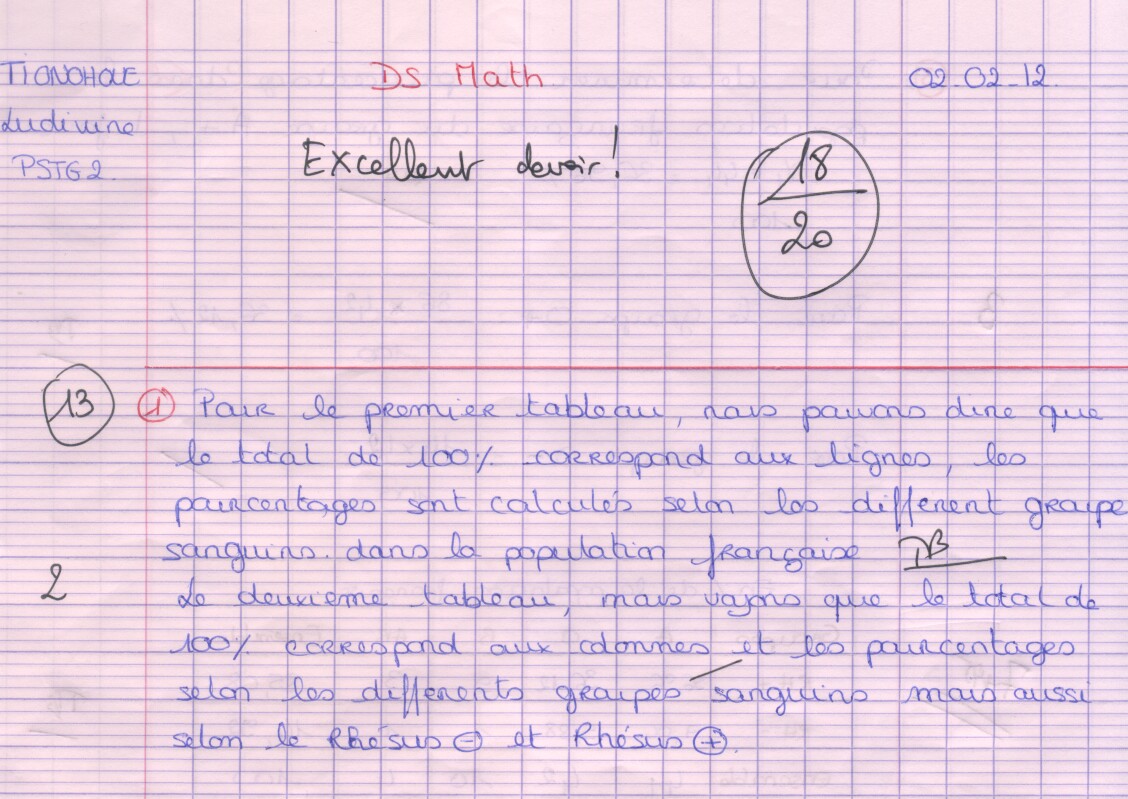 TIONOHOUE DS Math 02-02-12.
Ludivine
PSTG2.
Excellent devoir!
18
20
13
① Pour le premier tableau, nous pouvons dire que
le total de 100% correspond aux lignes, les
pourcentages sont calculés selon les différent groupe
sanguins. dans la population française TB
2
Le deuxième tableau, nous voyons que le total de
100% correspond aux colonnes et les pourcentages
selon les différents groupes sanguins mais aussi
selon le Rhésus ⊖ et Rhésus ⊕.